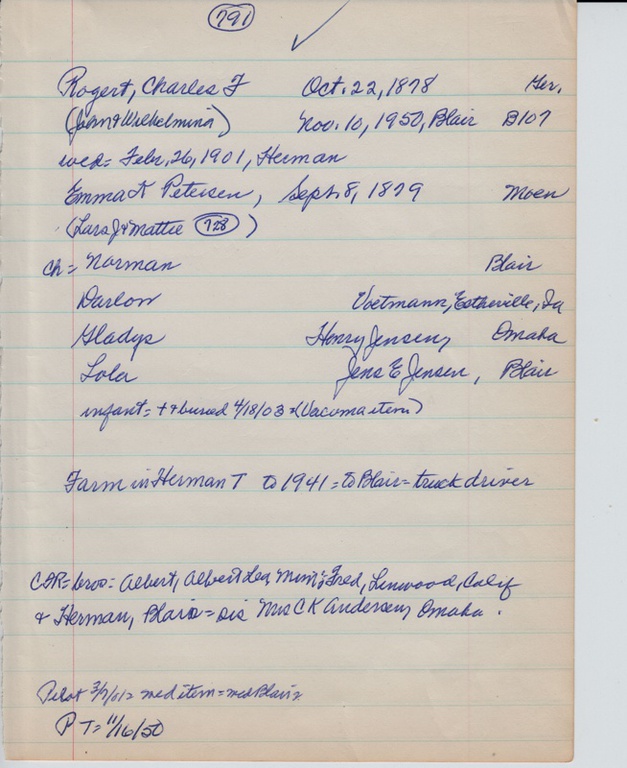 791
Rogert, Charles F Oct. 22, 1878 Ger.
(John & Wilhelmina) Nov. 10, 1950, Blair B107
wed= Febr. 26, 1901, Herman
Emma K Petersen, Sept. 8, 1879 Moen
(Lars J & Mattie 728)
ch= Norman Blair
Darlon Voetmann, Estherville, Ia
Gladys Henry Jensen, Omaha
Lola Jens E Jensen, Blair
infant= + & buried 4/18/03 = (Vacoma item)
Farm in Herman T to 1941 = to Blair = truck driver
CFR= bros= Albert, Albert Lea, Minn; Fred, Linwood, Calif
& Herman, Blair = sis Mrs C K Andersen, Omaha.
Pilot 3/7/01= wed item = wed Blair
P T= 11/16/50